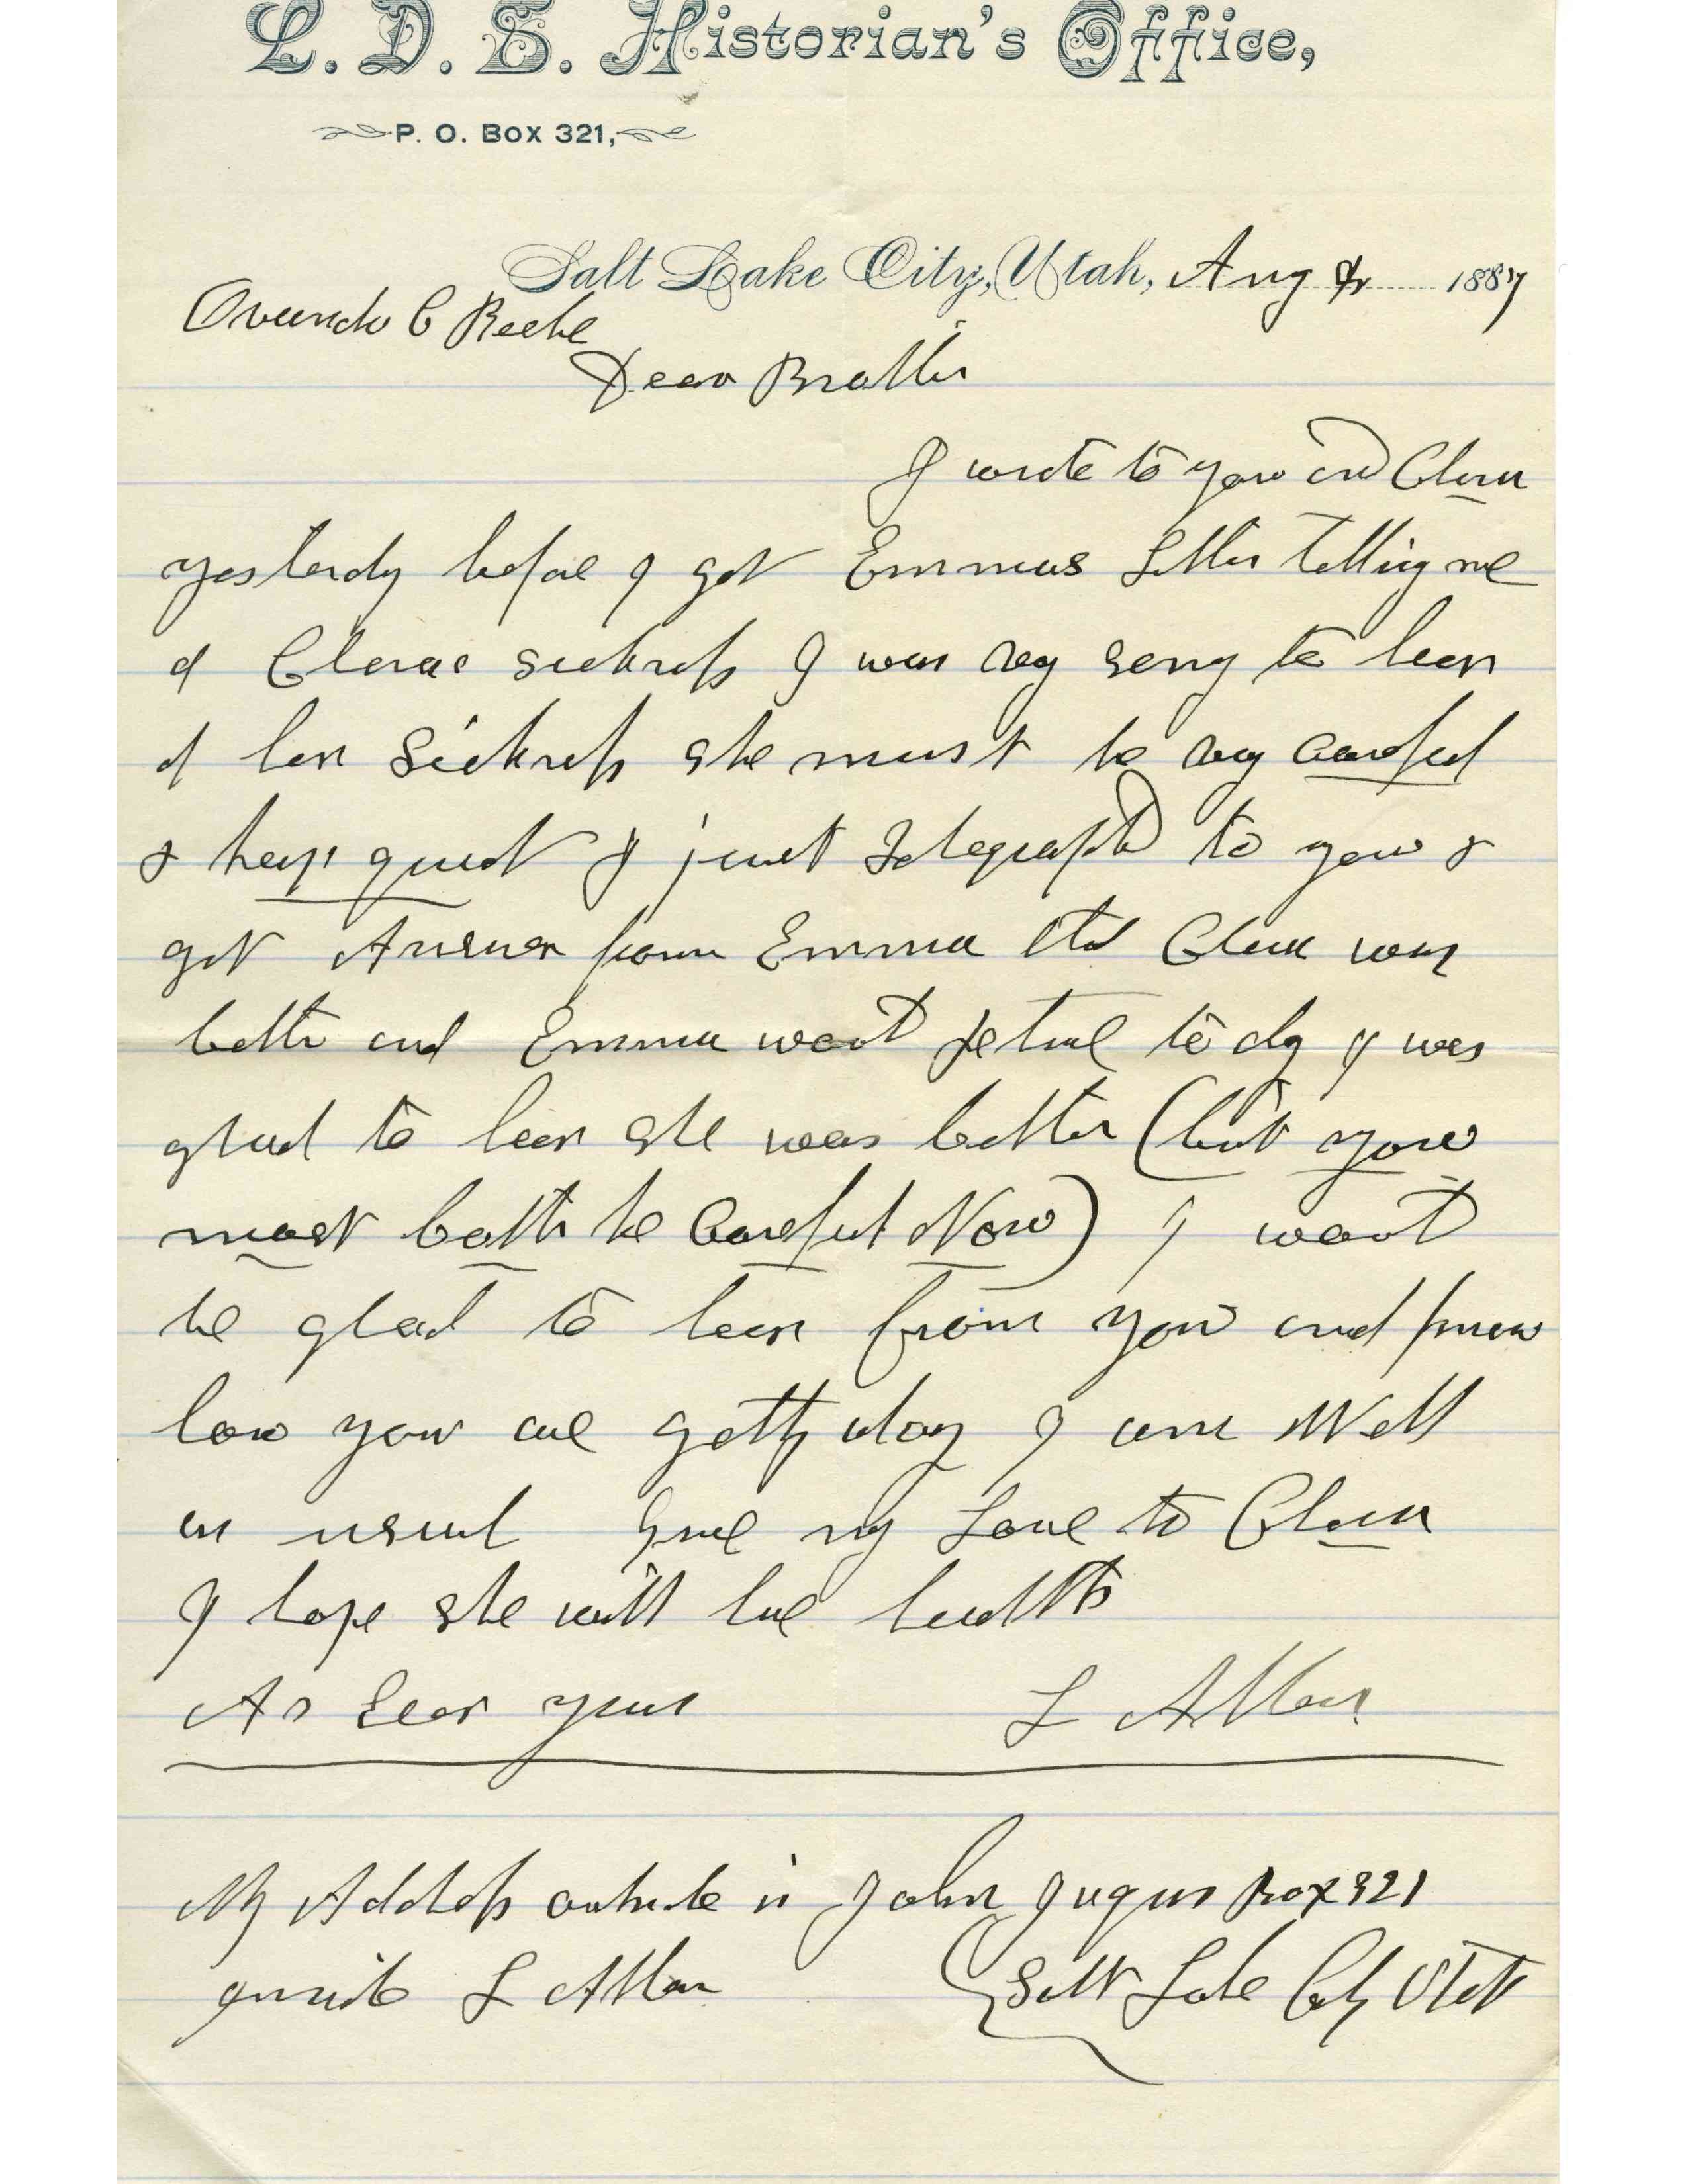 L. D. S. Historian's Office,
P. O. Box 321,
Salt Lake City, Utah, Aug 4 1887
Ovando C Beebe
Dear Brother
I wrote to you and Clara
yesterdy before I got Emmas Letter telling me
of Claras sickness I was very sorry to hear
of her Sickness she must be very careful
& keep quiet I just Telegraphd to you &
got Answer from Emma that Clara was
better and Emma would return to day I was
glad to hear she was better (but you
must both be Careful Now) I would
be glad to hear from you and know
how you are getting along I am Well
as usual Give my Love to Clara
I hope she will have health
As Ever yours L Allan
My Address outside is John Jaques Box 321
inside L Allan Salt Lake City Utah